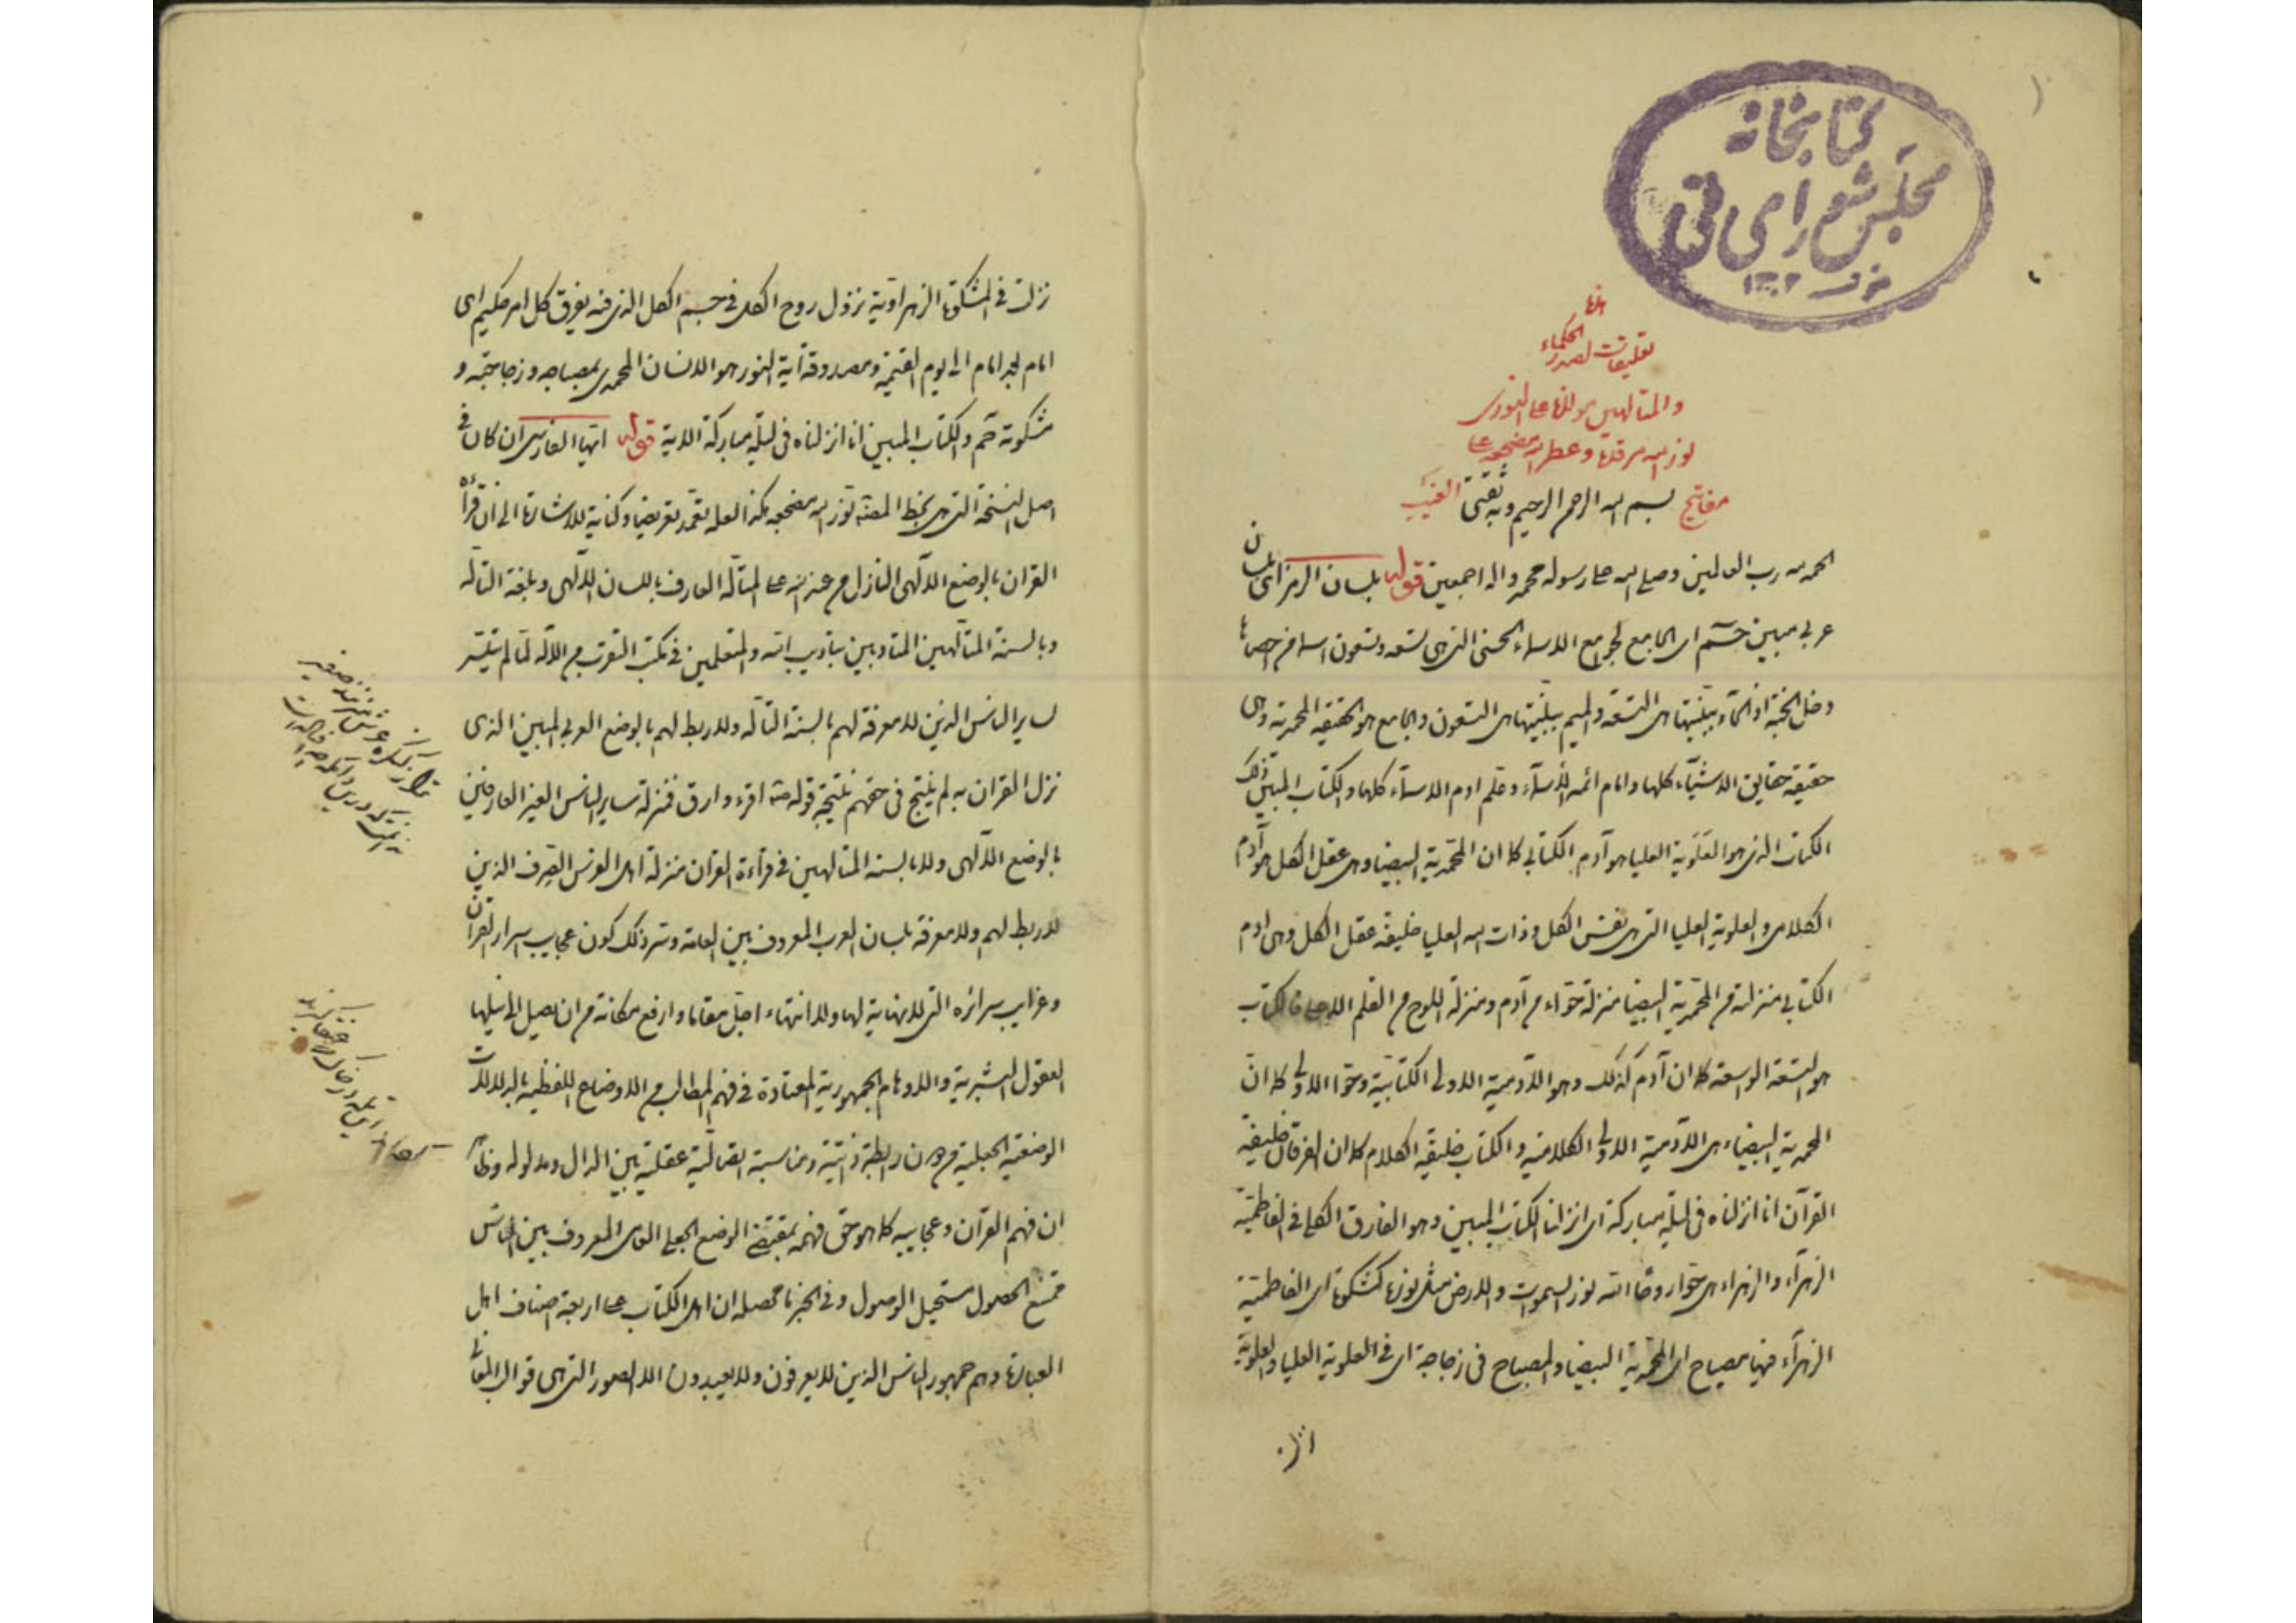 كتابخانه
مجلس شورای ملی
۱۳۰۲
هذه
تعليقات لصدر الحكماء
والمتألهين مولانا علی النوری
نور الله مرقده وعطر الله مضجعه علی
مفاتيح الغيب
بسم الله الرحمن الرحيم وبه ثقتی
الحمد لله رب العالمين وصلی الله علی رسوله محمد واله اجمعين قوله بلسان الرمز ای بلسان
عربی مبين حم ای الجامع لجوامع الاسماء الحسنی التی هی تسعه وتسعون اسما من احصاها
دخل الجنة اذ الحاء ببينتها هی التسعة والميم ببينتها هی التسعون والجامع هو الحقيقة المحمدية وهی
حقيقة حقايق الاشياء كلها وامام ائمه الأسماء وعلم ادم الاسماء كلها والكتاب المبين ذلك
الكتاب الذی هو العلوية العليا هو آدم الكتابی كما ان المحمدية البيضا وهی عقل الكل هو آدم
الكلامی والعلوية العليا التی هی نفس الكل وذات الله العليا خليفة عقل الكل وهی ادم
الكتابی منزلته من المحمدية البيضا منزلة حواء من آدم ومنزلة اللوح من القلم الاعلی فالكتاب
هو النسخة الواسعة كما ان آدم كذلك وهو الآدمية الاولی الكتابية وحوا الاولی كما ان
المحمدية البيضاء هی الآدمية الاولی الكلامية والكتاب خليفة الكلام كما ان الفرقان خليفة
القرآن انا انزلناه فی ليلة مباركة ای انزلنا الكتاب المبين وهو الفارق الكلی فی الفاطمية
الزهرآء والزهراء هی حوار وحا الله نور السموات والارض مثل نوره كمشكوة ای الفاطمية
الزهرآء فيها مصباح ای المحمدية البيضا والمصباح فی زجاجة ای فی العلوية العليا والعلوية
نزلت فی المشكوة الزهراوية نزول روح الكل فی جسم الكل الذی فيه يفرق كل امر حكيم ای
امام بعد امام الی يوم القيمة ومصدوقة آية النور هو الانسان المحمدی بمصباحه وزجاجته و
مشكوته حم والكتاب المبين انا انزلناه فی ليلة مباركة الاية قوله ايها القاری ان كان فی
اصل النسخة التی هی بخط المصنف نور الله مضجعه هكذا لعله تعمد تعريضا وكناية للاشارة الی ان قرأة
القران بالوضع الآلهی النازل من عند الله علی المتأله العارف باللسان الآلهی وبلغة التأله
وبالسنة المتألهين المتادبين بتاديب الله والمتعلمين فی مكتب التقرب من الاله لما لم يتيسر
لساير الناس الذين لا معرفة لهم بالسنة التأله ولا ربط لهم بالوضع العربی المبين الذی
نزل القران به لم ينتج فی حقهم نتيجة قوله اقرء وارق فمنزلة ساير الناس الغير العارفين
بالوضع الآلهی ولا بالسنة المتالهين فی قراءة القرآن منزلة اهل الفرس الصرف الذين
لا ربط لهم ولا معرفة بلسان العرب المعروف بين العامة وسر ذلك كون عجايب اسرار القرآن
وغرايب سرائره التی لا نهاية لها ولا انتهاء اجل مقاما وارفع مكانة من ان يصل الی نيلها
العقول البشرية والاوهام الجمهورية المعتادة فی فهم المطالب من الاوضاع اللفظية بالدلالات
الوضعية الجعلية من دون رابطة ذاتية ومناسبة اتصالية عقلية بين الدال ومدلوله وظاهر
ان فهم القرآن وعجايبه كما هو حق فهمه بمقتضی الوضع الجعلی العامی المعروف بين الناس
ممتنع الحصول مستحيل الوصول وفی الخبر ما محصله ان اهل الكتاب علی اربعة اصناف اهل
العبارة وهم جمهور الناس الذين لا يعرفون ولا يعبدون الا الصور التی هی قوالب المعانی